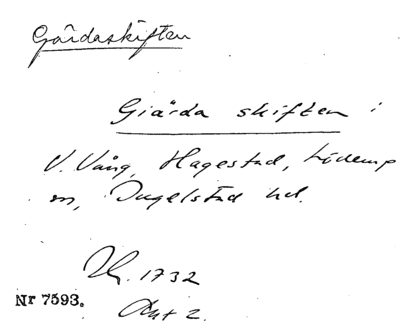 Gärdaskiften
Giärda skiften i
V. Vång, Hagestad, Löderup
m, Ingelstad hd.
1732
Nr 7593.
Akt 2.